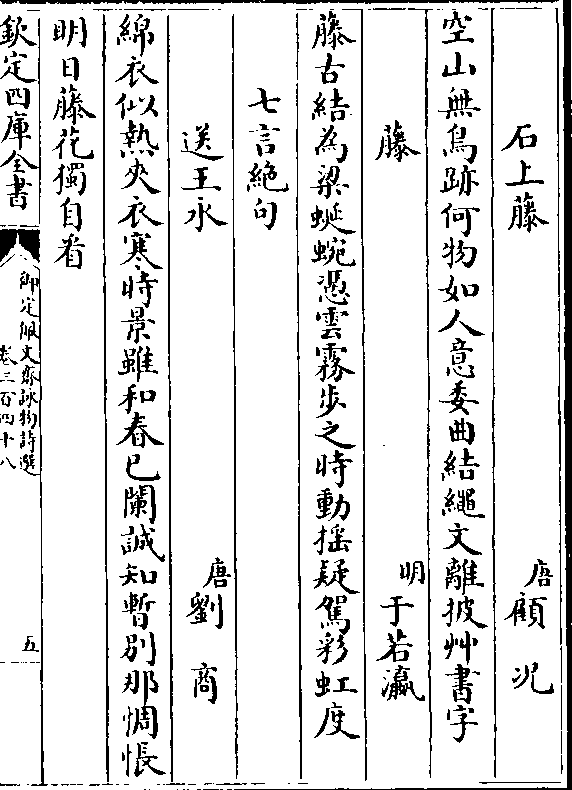 石上藤　唐　顧況
空山無鳥跡何物如人意委曲結繩文離披艸書字
藤　明　于若瀛
藤古結為梁蜿蜒憑雲霧歩之時動揺疑駕彩虹度
七言絶句
送王永　唐　劉商
綿衣似熱夾衣寒時景雖和春已闌誠知暫别那惆悵
明日藤花獨自看
欽定四庫全書
御定佩文齋詠物詩選
卷三百四十八
五